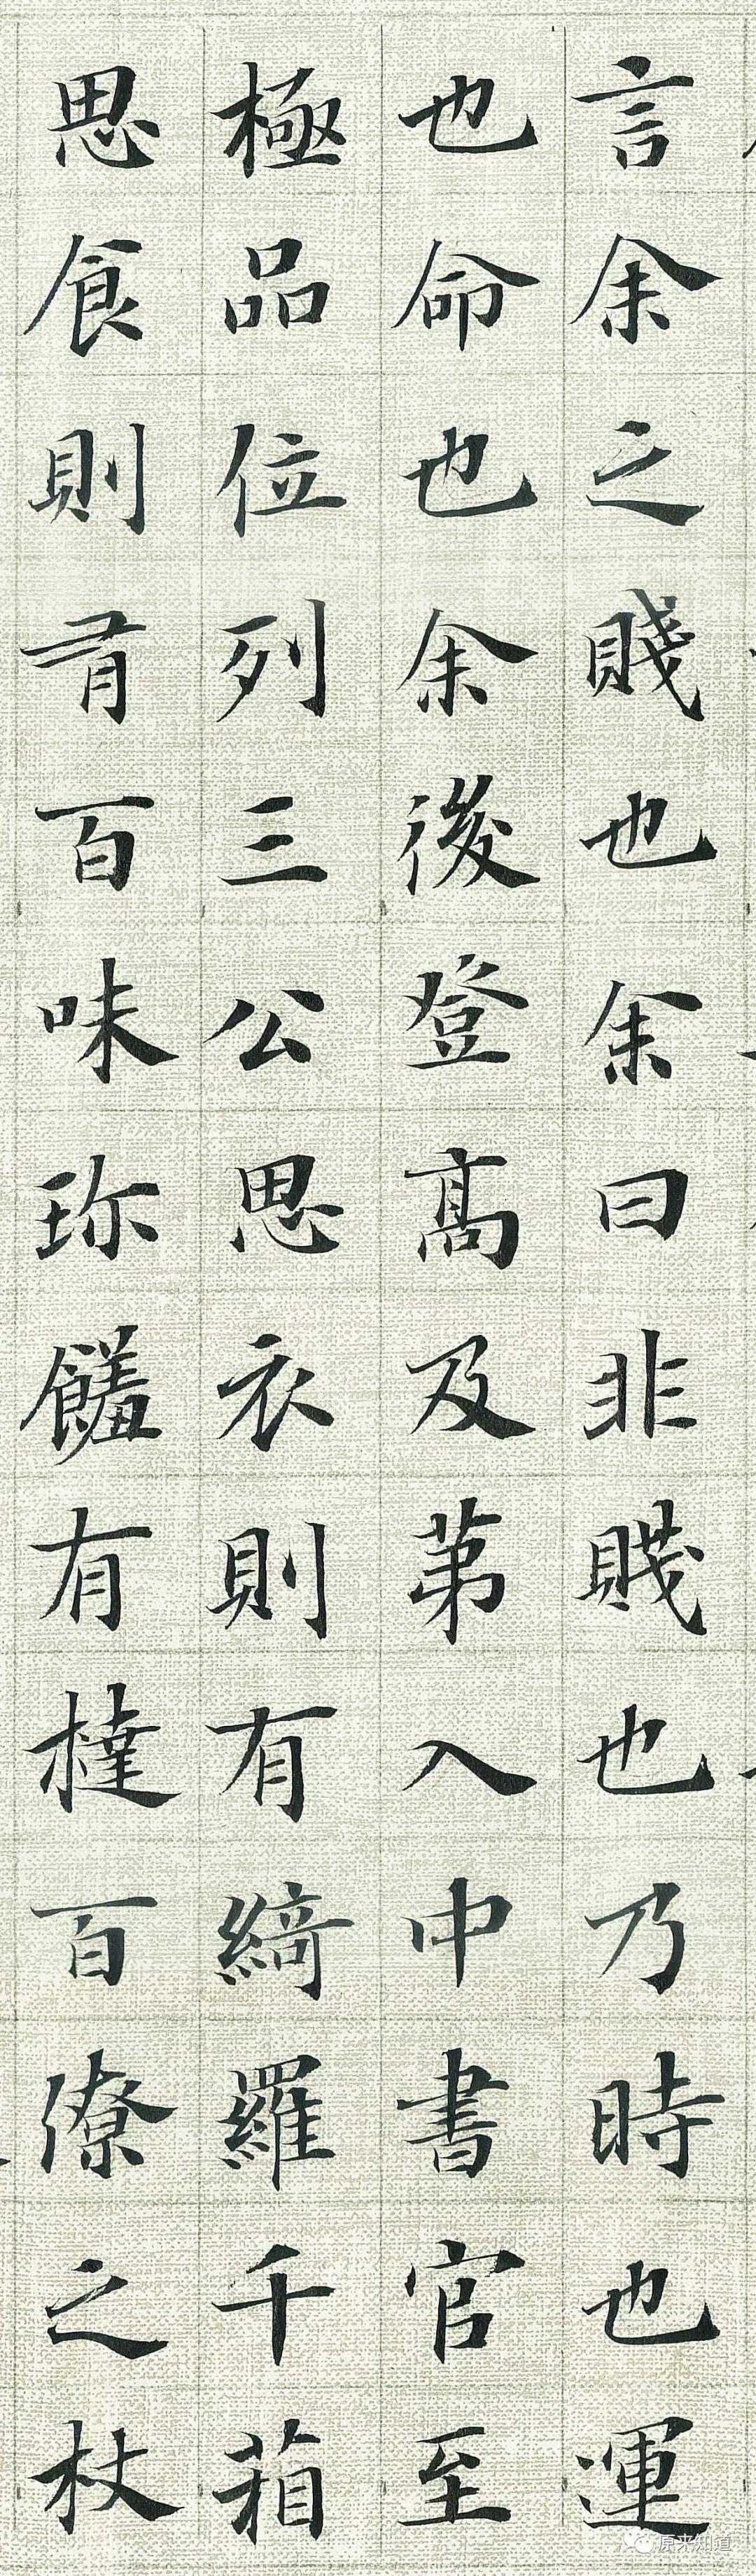 言余之賤也余曰非賤也乃時也運
也命也余後登高及第入中書官至
極品位列三公思衣則有綺羅千箱
思食則有百味珍饈有撻百僚之杖
原来知道